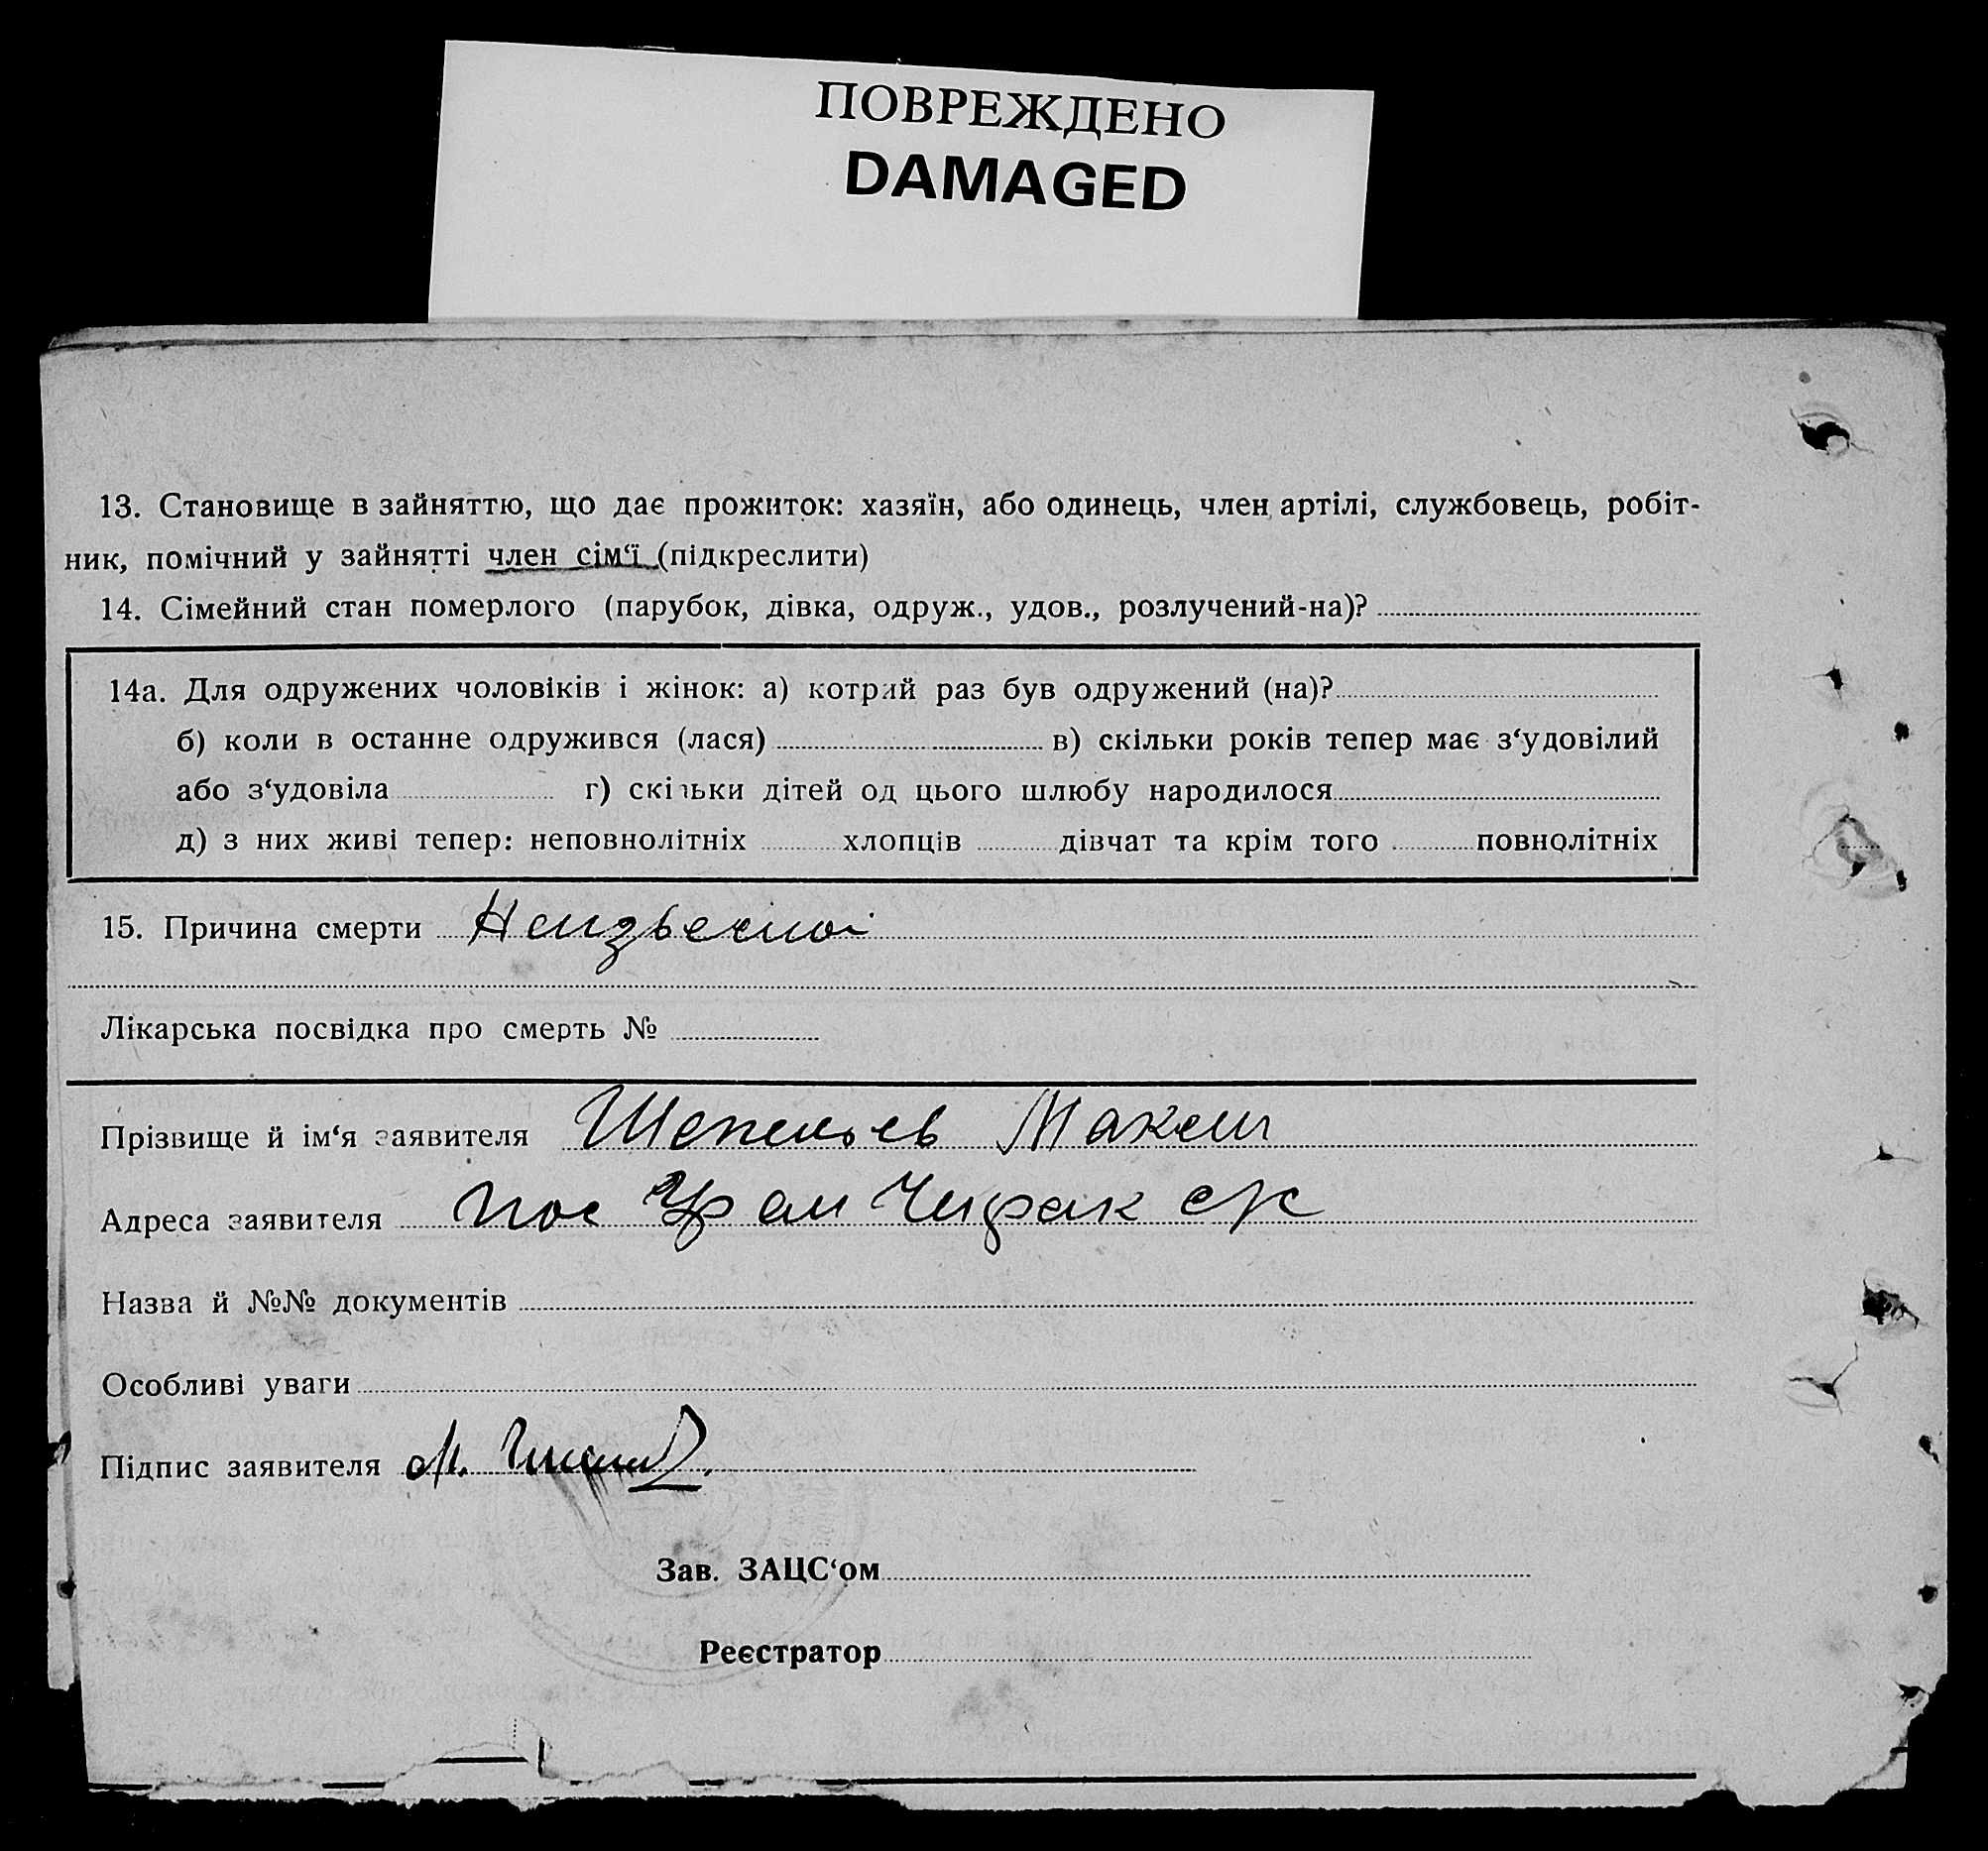 ПОВРЕЖДЕНО
DAMAGED
13. Становище в зайняттю, що дає прожиток: хазяїн, або одинець, член артілі, службовець, робіт-
ник, помічний у зайнятті член сім‘ї (підкреслити)
14. Сімейний стан померлого (парубок, дівка, одруж., удов., розлучений-на)?
14а. Для одружених чоловіків і жінок: а) котрий раз був одружений (на)?
б) коли в останне одружився (лася) в) скільки років тепер має з‘удовілий
або з‘удовіла г) скільки дітей од цього шлюбу народилося
д) з них живі тепер: неповнолітніх хлопців дівчат та крім того повнолітніх
15. Причина смерти
Лікарська посвідка про смерть №
Прізвище й ім‘я заявителя Шепельев Максим
Адреса заявителя пос
Назва й №№ документів
Особливі уваги
Підпис заявителя М.
Зав. ЗАЦС‘ом
Реєстратор